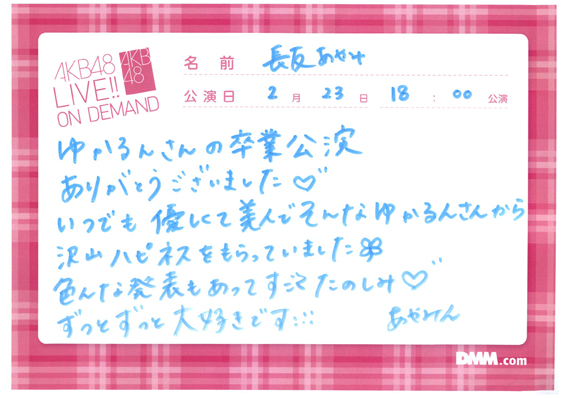 AKB48
LIVE!!
ON DEMAND
AKB
48
名前 長友あやみ
公演日 2月23日 18:00 公演
ゆかるんさんの卒業公演
ありがとうございました♡
いつでも優しくて美人でそんなゆかるんさんから
沢山ハピネスをもらっていました
色んな発表もあってすごくたのしみ♡
ずっとずっと大好きです:::
あやみん
DMM.com